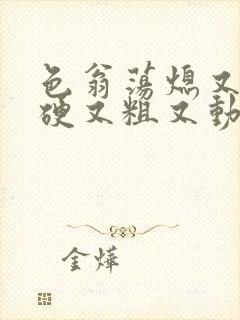 色翁荡熄又
硬又粗又動
金燁